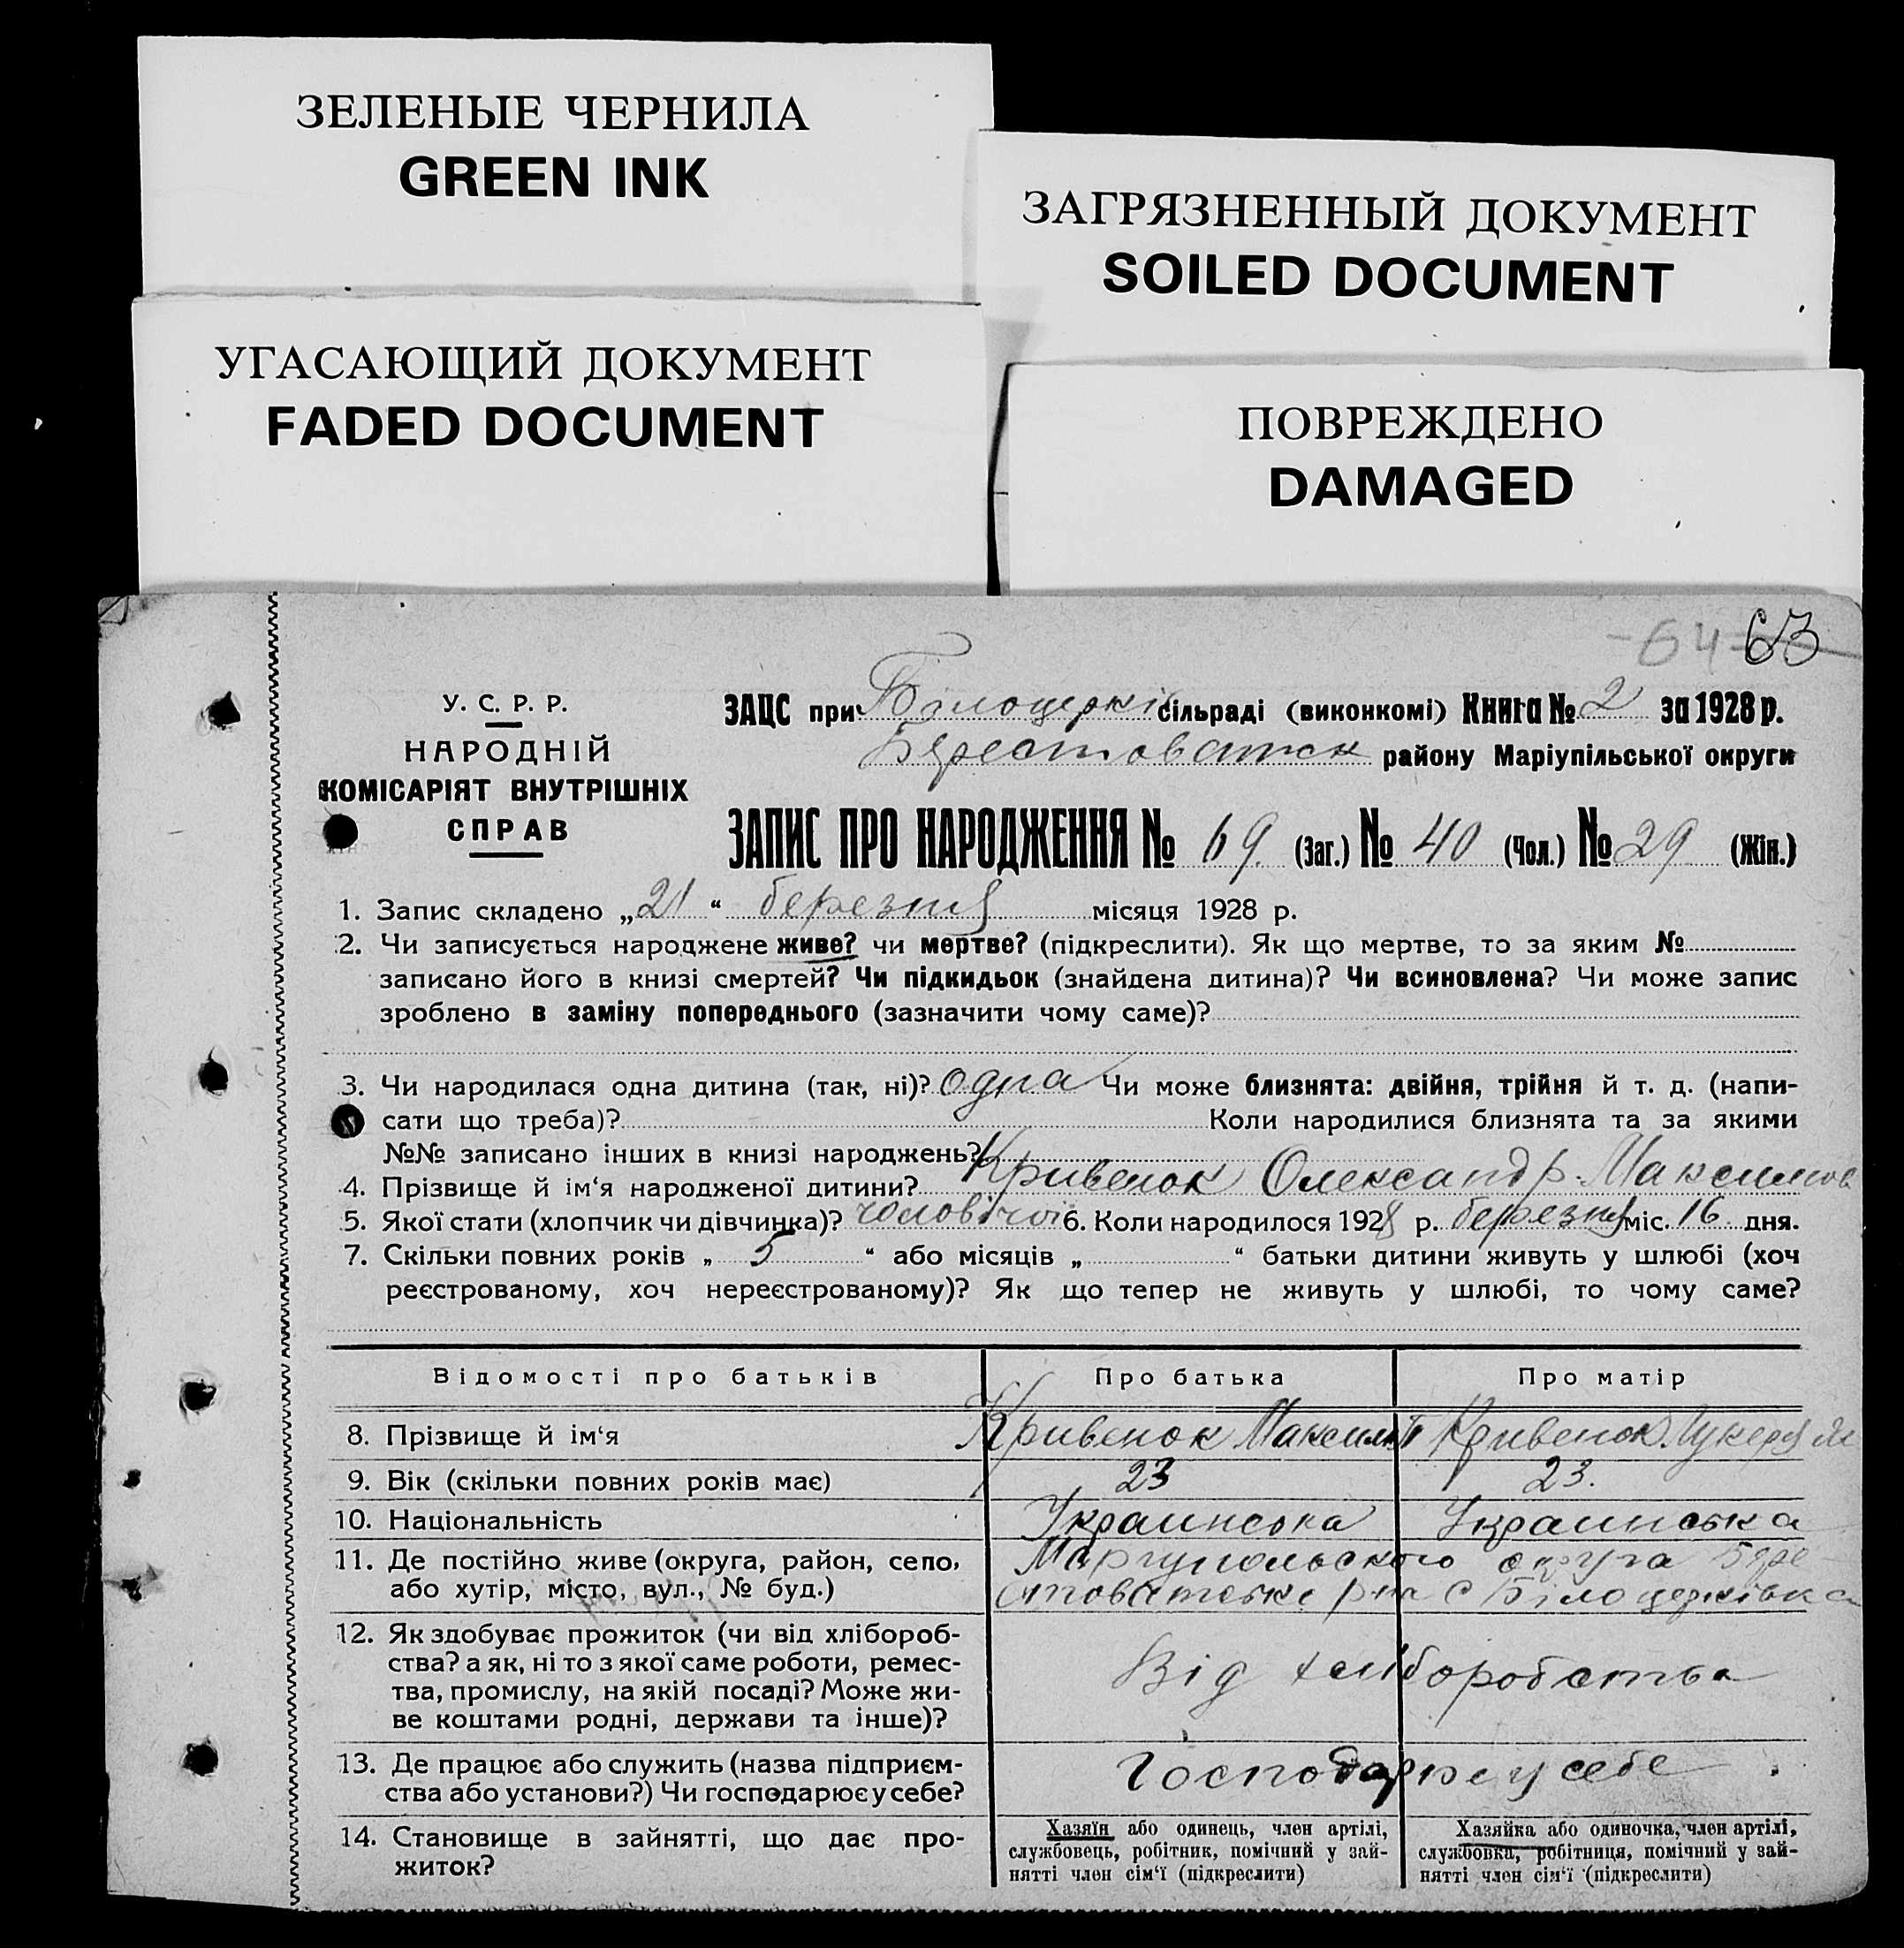 ЗЕЛЕНЫЕ ЧЕРНИЛА
GREEN INK
ЗАГРЯЗНЕННЫЙ ДОКУМЕНТ
SOILED DOCUMENT
УГАСАЮЩИЙ ДОКУМЕНТ
FADED DOCUMENT
ПОВРЕЖДЕНО
DAMAGED
64 63
У. С. Р. Р.
НАРОДНІЙ
КОМІСАРІЯТ ВНУТРІШНІХ
СПРАВ
ЗАЦС при Білоцерків сільраді (виконкомі) Книга № 2 за 1928 р.
Берестоватск району Маріупільської округи
ЗАПИС ПРО НАРОДЖЕННЯ № 69. (Заг.) № 40 (Чол.) № 29 (Жін.)
1. Запис складено „21“ березня місяця 1928 р.
2. Чи записується народжене живе? чи мертве? (підкреслити). Як що мертве, то за яким №
записано його в книзі смертей? Чи підкидьок (знайдена дитина)? Чи всиновлена? Чи може запис
зроблено в заміну попереднього (зазначити чому саме)?
3. Чи народилася одна дитина (так, ні)? одна Чи може близнята: двійня, трійня й т. д. (напи-
сати що треба)? Коли народилися близнята та за якими
№№ записано інших в книзі народжень?
4. Прізвище й ім‘я народженої дитини? Кривенок Олександр Максимов
5. Якої стати (хлопчик чи дівчинка)? чоловічої 6. Коли народилося 1928 р. березня міс. 16 дня.
7. Скільки повних років „ 5 “ або місяців „ “ батьки дитини живуть у шлюбі (хоч
реєстрованому, хоч нереєстрованому)? Як що тепер не живуть у шлюбі, то чому саме?
Відомості про батьків Про батька Про матір
8. Прізвище й ім‘я Кривенок Максим Кривенок
9. Вік (скільки повних років має) 23 23.
10. Національність Украинська Украинська
11. Де постійно живе (округа, район, село, Маріупольского округа Бере
або хутір, місто, вул., № буд.) стоватське р-на с Білоцерківка
12. Як здобуває прожиток (чи від хлібороб-
ства? а як, ні то з якої саме роботи, ремес-
тва, промислу, на якій посаді? Може жи-
ве коштами родні, держави та інше)?
Від хліборобства
13. Де працює або служить (назва підприєм-
ства або установи?) Чи господарює у себе?
Господарює у себе
14. Становище в зайнятті, що дає про-
житок?
Хазяїн або одинець, член артілі,
службовець, робітник, помічний у зай-
нятті член сім‘ї (підкреслити)
Хазяйка або одиночка, член артілі,
службовка, робітниця, помічний у зай-
нятті член сім‘ї (підкреслити)